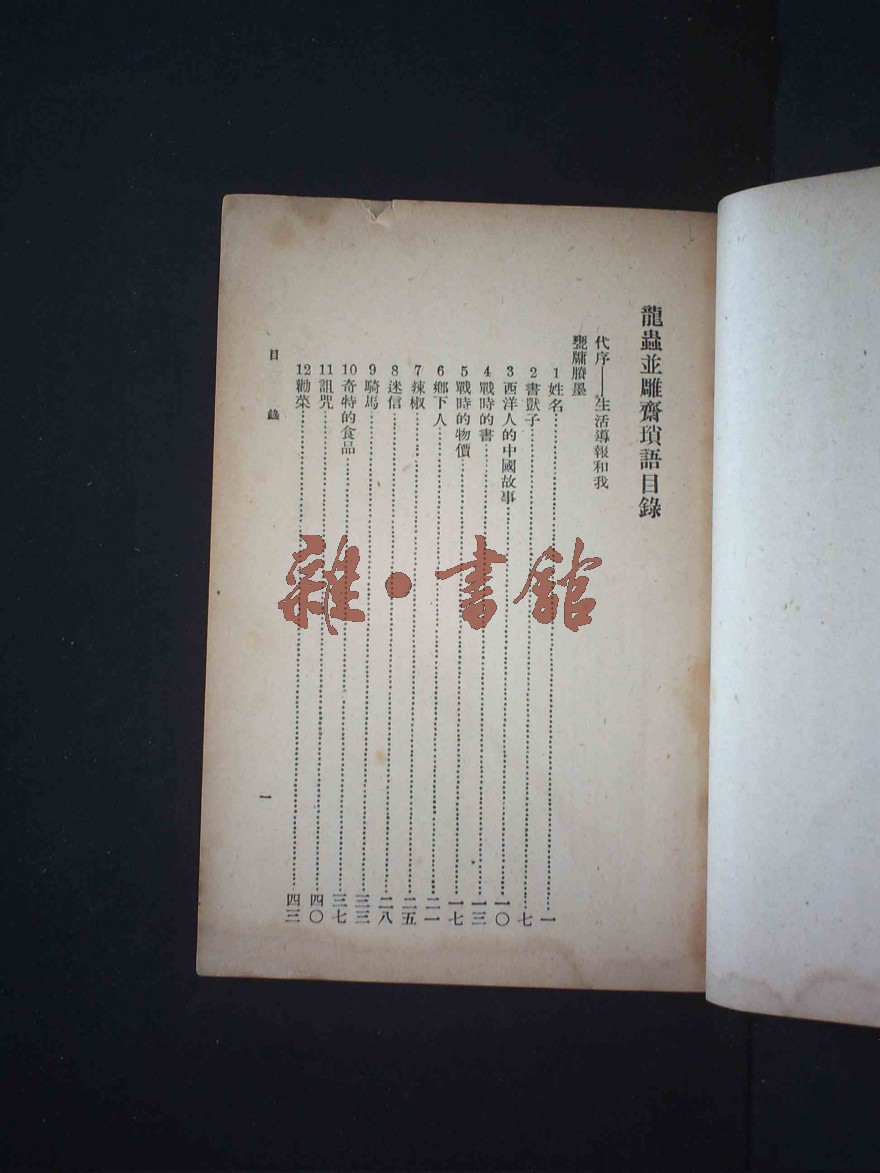 龍蟲並雕齋瑣語目錄
代序——生活導報和我
甕牖賸墨
1 姓名…………一
2 書獃子…………七
3 西洋人的中國故事…………一〇
4 戰時的書…………一三
5 戰時的物價…………一七
6 鄉下人…………二一
7 辣椒…………二五
8 迷信…………二八
9 騎馬…………三三
10 奇特的食品…………三七
11 詛咒…………四〇
12 勸菜…………四三
目錄
一
雜·書館